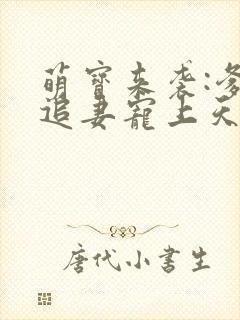 萌寶来袭:爹
追妻寵上天
唐代小書生